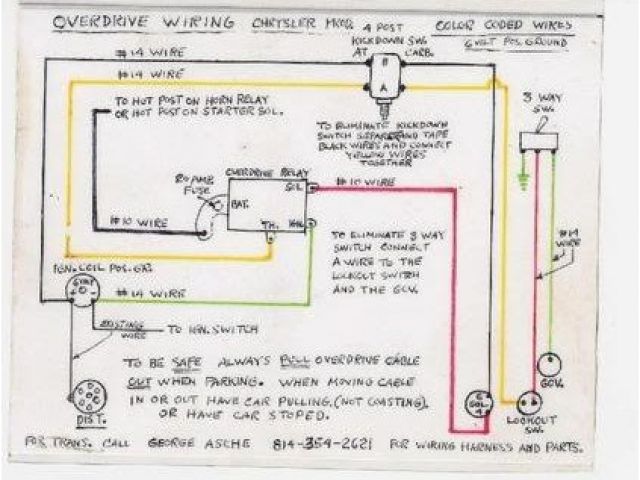 OVERDRIVE WIRING CHRYSLER PROD.
COLOR CODED WIRES
6 VOLT POS. GROUND
4 POST
KICKDOWN SW.
AT CARB.
#14 WIRE
#14 WIRE
B
A
3 WAY
SW.
TO HOT POST ON HORN RELAY
OR HOT POST ON STARTER SOL.
TO ELIMINATE KICKDOWN
SWITCH SEPARATE AND TAPE
BLACK WIRES AND CONNECT
YELLOW WIRES
TOGETHER
OVERDRIVE RELAY
20 AMP
FUSE
SOL
BAT.
TH.
IGN.
#10 WIRE
#10 WIRE
TO ELIMINATE 3 WAY
SWITCH CONNECT
A WIRE TO THE
LOCKOUT SWITCH
AND THE GOV.
#14
WIRE
IGN. COIL POS. GR.
6 VOLT
#14 WIRE
EXISTING
WIRE
TO IGN. SWITCH
GOV.
TO BE SAFE ALWAYS PULL OVERDRIVE CABLE
OUT WHEN PARKING. WHEN MOVING CABLE
IN OR OUT HAVE CAR PULLING. (NOT COASTING).
OR HAVE CAR STOPED.
DIST.
6
SOL
4
LOCKOUT
SW.
FOR TRANS. CALL GEORGE ASCHE 814-354-2621 FOR WIRING HARNESS AND PARTS.